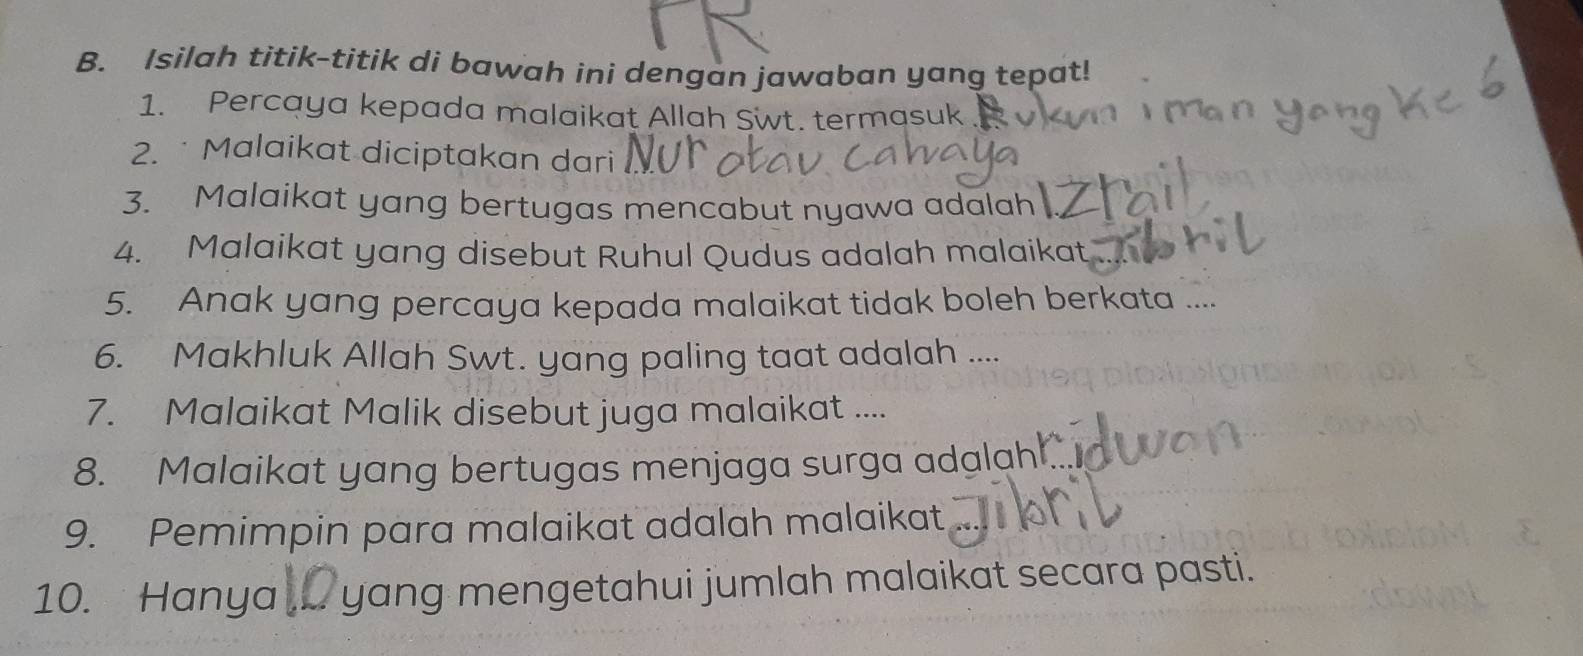 PR
B. Isilah titik-titik di bawah ini dengan jawaban yang tepat!
1. Percaya kepada malaikat Allah Swt. termasuk .... Rukun iman yang ke 6
2. Malaikat diciptakan dari .... Nur atau cahaya
3. Malaikat yang bertugas mencabut nyawa adalah .... Izrail
4. Malaikat yang disebut Ruhul Qudus adalah malaikat .... Jibril
5. Anak yang percaya kepada malaikat tidak boleh berkata ....
6. Makhluk Allah Swt. yang paling taat adalah ....
7. Malaikat Malik disebut juga malaikat ....
8. Malaikat yang bertugas menjaga surga adalah .... ridwan
9. Pemimpin para malaikat adalah malaikat .... Jibril
10. Hanya .... yang mengetahui jumlah malaikat secara pasti.